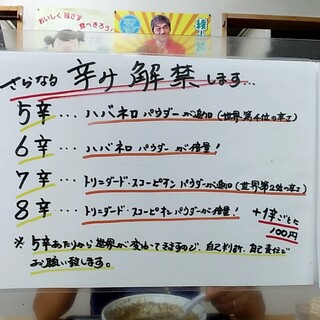 おいしく残さず
食べきろう!
さらなる 辛み解禁します...
5辛... ハバネロ パウダーが追加(世界第4位の辛さ)
6辛... ハバネロ パウダーが倍量!
7辛... トリニダード・スコーピオン パウダーが追加(世界第2位の辛さ)
8辛... トリニダード・スコーピオン パウダーが倍量!
+1辛ごとに
100円
※ 5辛あたりから世界が変わってきますので、自己判断、自己責任で
お願い致します。